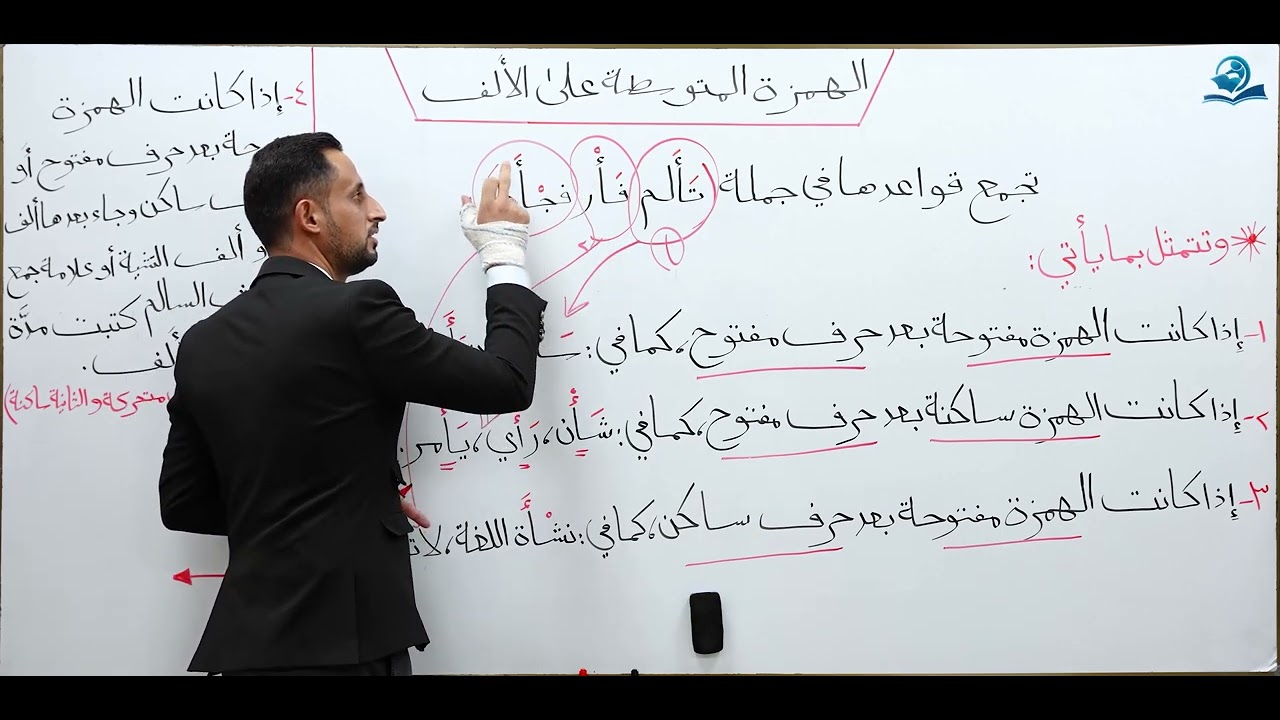 الهمزة المتوسطة على الألف
تجمع قواعدها في جملة (تَأَلم فَأْر فجْأَ
* وتتمثل بما يأتي:
١- إذا كانت الهمزة مفتوحة بعد حرف مفتوح، كما في: سَ
٢- إذا كانت الهمزة ساكنة بعد حرف مفتوح، كما في: شَأْن، رَأْي، يَأْمر.
٣- إذا كانت الهمزة مفتوحة بعد حرف ساكن، كما في: نشْأَة اللغة، لا
٤- إذا كانت الهمزة
بعد حرف مفتوح أو
ساكن وجاء بعدها ألف
ألف التثنية أو علامة جمع
السالم كتبت مدَّة
ألف.
متحركة والثانية ساكنة)
١
٢